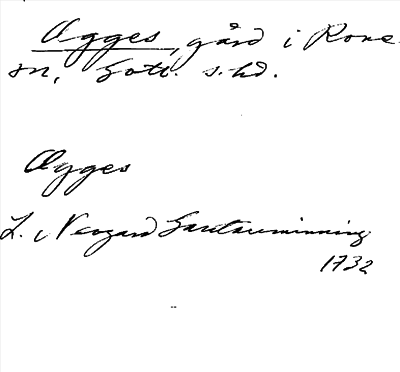 Ægges, gård i Rone
sn, Gotl. s. hd.
Ægges
L. Neogard Gautauminning
1732